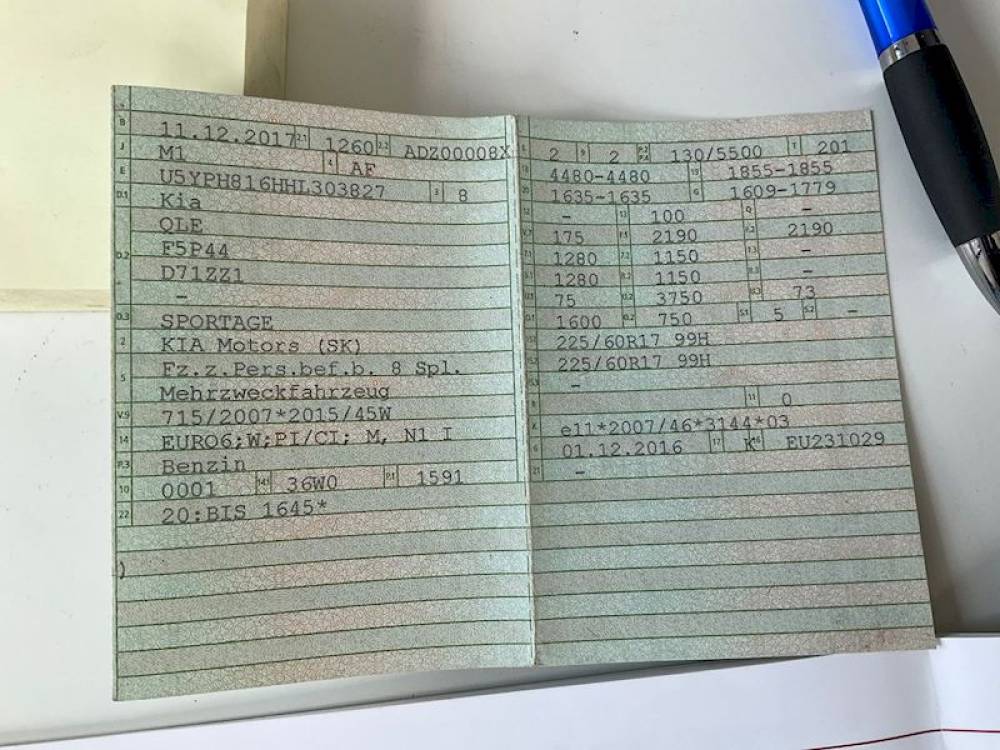 B 11.12.2017 2.1 1260 2.2 ADZ00008X
J M1 4 AF
E U5YPH816HHL303827 3 8
D.1 Kia
QLE
D.2 F5P44
D71ZZ1
–
D.3 SPORTAGE
2 KIA Motors (SK)
5 Fz.z.Pers.bef.b. 8 Spl.
Mehrzweckfahrzeug
V.9 715/2007*2015/45W
14 EURO6;W;PI/CI; M, N1 I
P.3 Benzin
10 0001 14.1 36W0 P.1 1591
22 20:BIS 1645*
)
2 9 2 P.2 P.4 130/5500 T 201
18 4480-4480 19 1855-1855
20 1635-1635 G 1609-1779
12 – 13 100 Q –
V.7 175 F.1 2190 F.2 2190
7.1 1280 7.2 1150 7.3 –
8.1 1280 8.2 1150 8.3 –
U.1 75 U.2 3750 U.3 73
O.1 1600 O.2 750 S.1 5 S.2 –
225/60R17 99H
225/60R17 99H
–
R 11 0
K e11*2007/46*3144*03
6 01.12.2016 17 K 16 EU231029
21 –